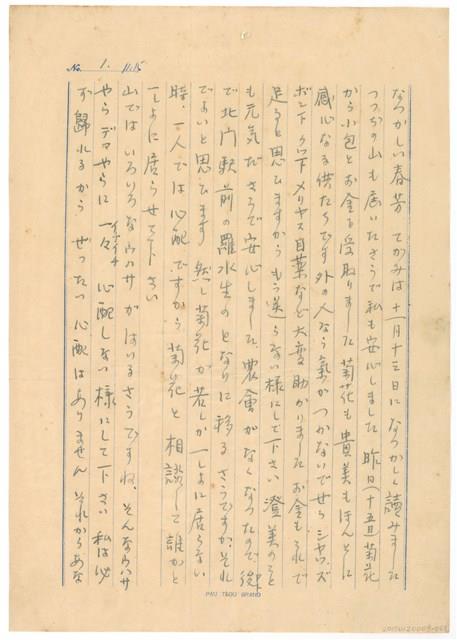 No. 1. 11.15
なつかしい春芳 てがみは十一月十三日になつかしく讀みました
つつぢの山も居いたさうで私も安心しました 昨日(十五日)菊花
から小包とお金を受取りました 菊花も貴美もほんとに
感心なる供たちです 外の人なら氣がつかないでせう シャツ、ズ
ボン下 メリヤス 目薬など大變助かりました お金もそれで
足ると思ひますから もう送らない様にして下さい 澄美のこと
も元気ださうで安心しました、農會がなくなつたので
で北門駅前の羅水生のとなりに移るさうですが、それ
でよいと思ひます 然し菊花が若しか一しよに居らない
時、一人では心配ですから 菊花と相談して誰かと
一しよに居らせて下さい
山ではいろいろなウハサがはいるさうですね、そんなウハサ
やらデマやらに一々 イチイチ 心配しない様にして下さい 私は必
ず歸れるから ぜつたい心配はありません それからあな
PAU TSOU BRAND